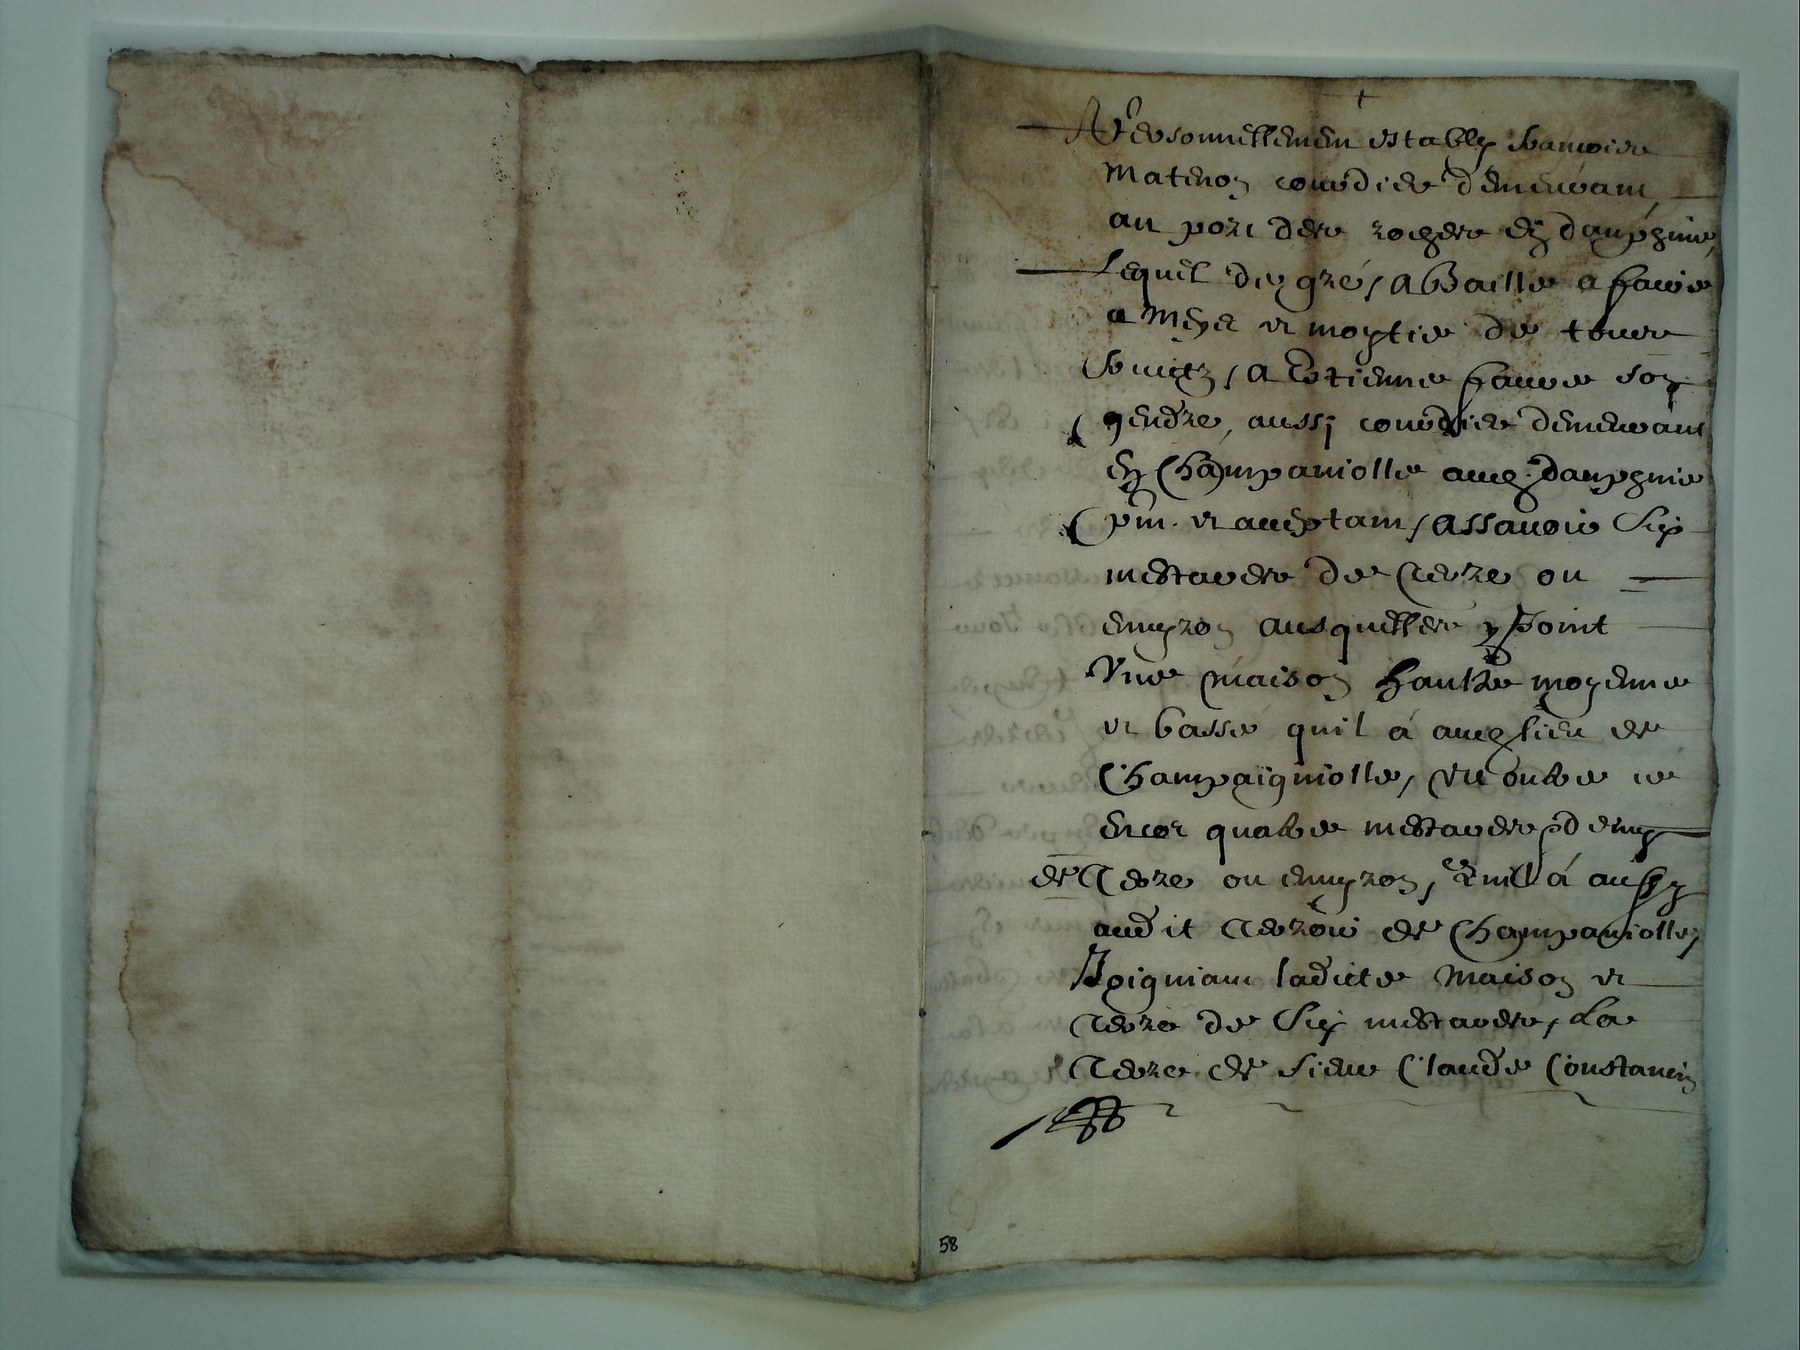 Personnellemen estably francois
Matenon courdier demeurant
au port des roches en dauphine
Lequel de gré, a Baille a faire
a Meyt et moytie de tous
fruictz, a Estienne faure son
gendre, aussi courdier demeurant
en Champaniolle aud. dauphine
pnt. et aceptant, assavoir Six
mestaers de Terre ou
envyron ausquelles y joint
Une maison haulte moyenne
et basse quil á aud lieu de
Champaigniolle, Et oultre ce
encor quatre mestaers & demy
de Terre ou envyron, quil á aussy
audit Terroir de Champaniolle,
Joigniant ladicte Maison et
Terre de Six mestaers, La
Terre de sieur Claude Constantin
58